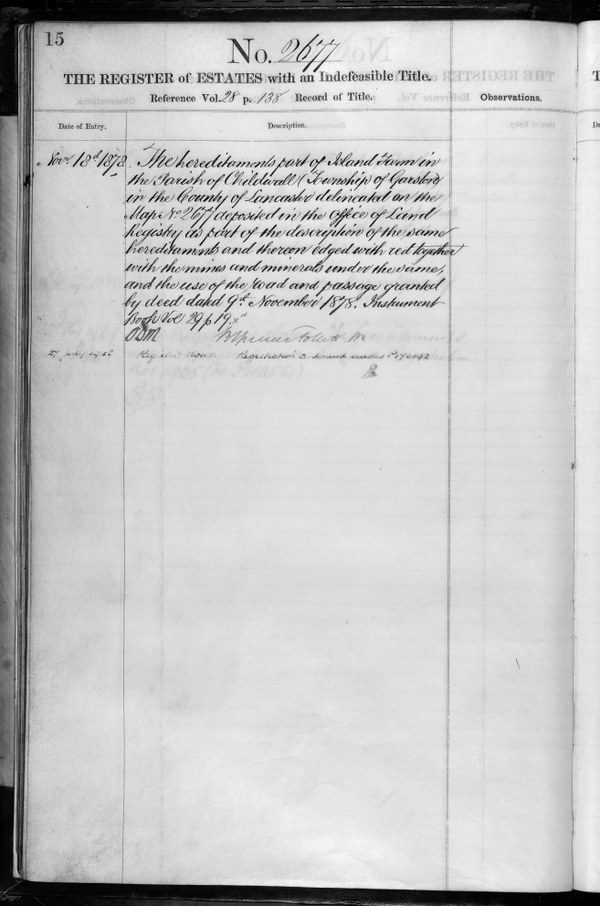 15
No. 2677
THE REGISTER of ESTATES with an Indefeasible Title.
Reference Vol. 28 p. 138 Record of Title.
Observations.
Date of Entry.
Description.
Novr. 18th 1878.
The hereditaments part of Island Farm in
the Parish of Childwall (Township of Garston)
in the County of Lancaster delineated on the
Map No 2677 deposited in the Office of Land
Registry as part of the description of the same
hereditaments and thereon edged with red together
with the mines and minerals under the same,
and the use of the road and passage granted
by deed dated 9th November 1878. Instrument
Book Vol 29 p 19.
Follett
27 July
Registration under